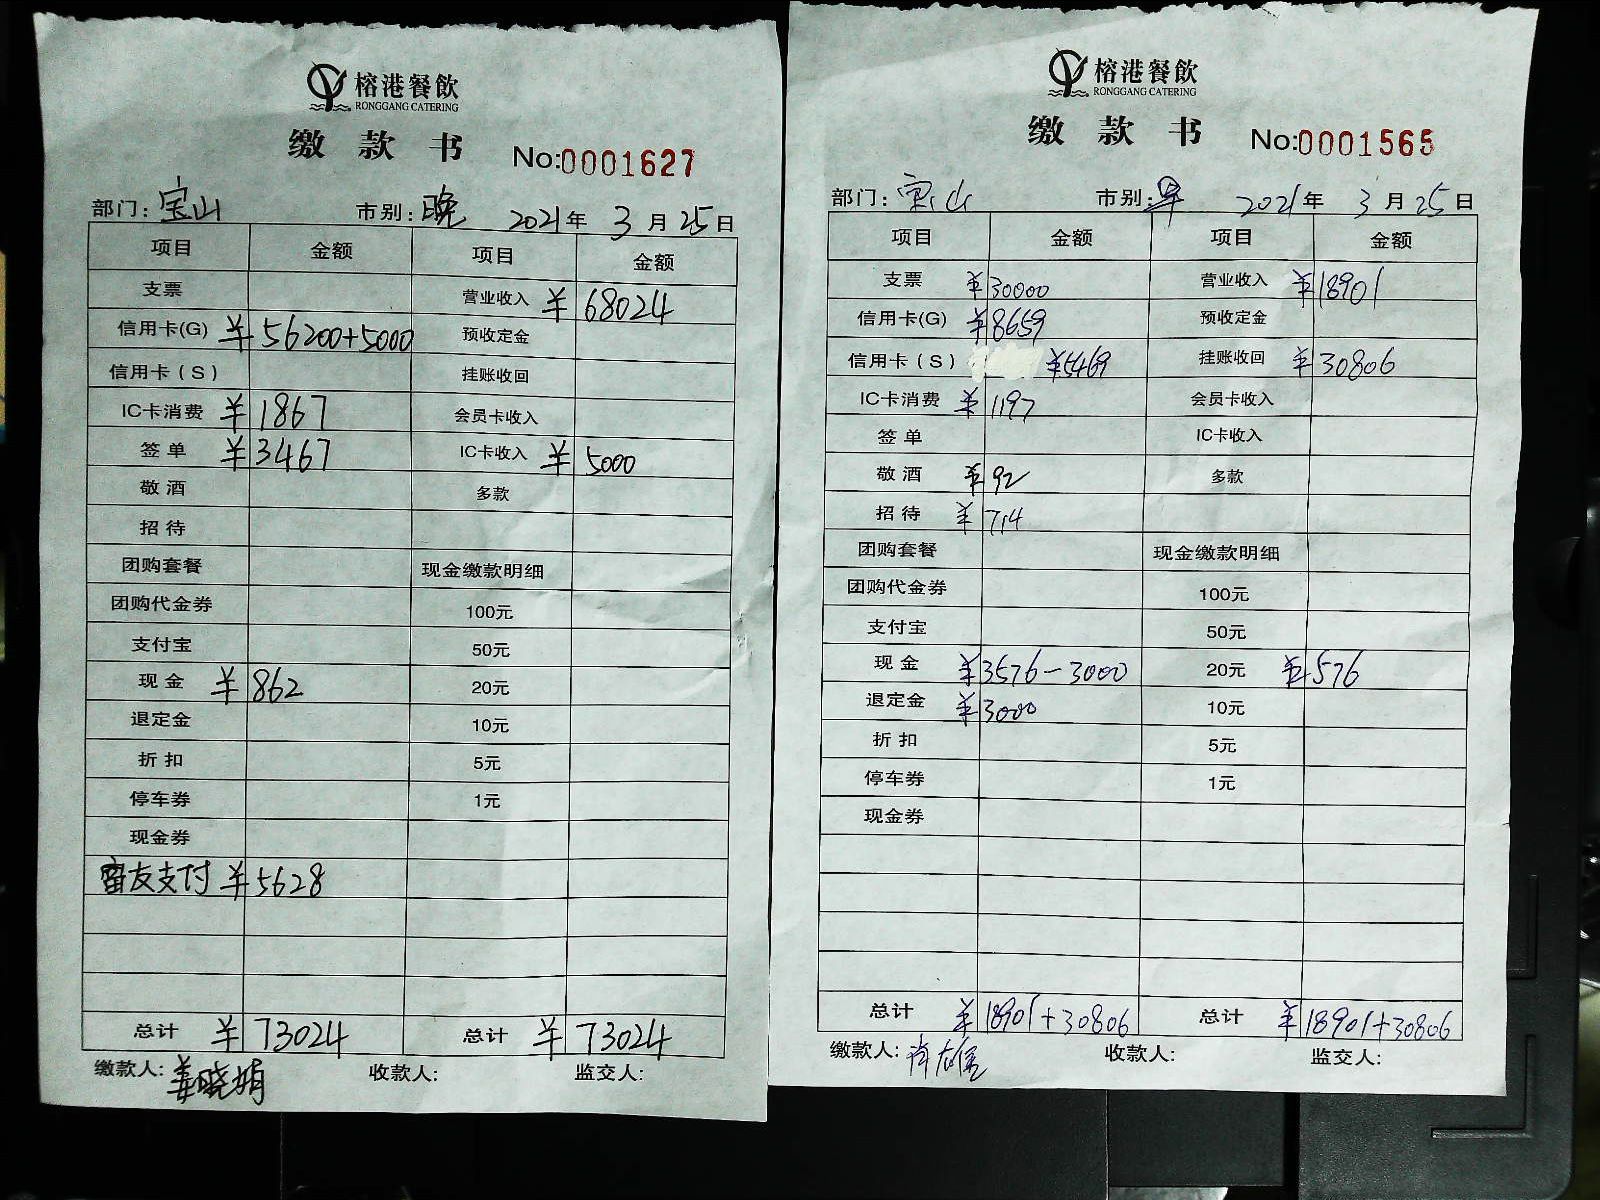 榕港餐飲
RONGGANG CATERING
缴款书
No:0001627
部门：宝山 市别：晚 2021年3月25日
项目 金额 项目 金额
支票 营业收入 ¥68024
信用卡(G) ¥56200+5000 预收定金
信用卡（S） 挂账收回
IC卡消费 ¥1867 会员卡收入
签单 ¥3467 IC卡收入 ¥5000
敬酒 多款
招待
团购套餐 现金缴款明细
团购代金券 100元
支付宝 50元
现金 ¥862 20元
退定金 10元
折扣 5元
停车券 1元
现金券
友支付 ¥5628
总计 ¥73024 总计 ¥73024
缴款人：姜晓娟 收款人： 监交人：
榕港餐飲
RONGGANG CATERING
缴款书
No:0001565
部门：宝山 市别：早 2021年3月25日
项目 金额 项目 金额
支票 ¥30000 营业收入 ¥18901
信用卡(G) ¥8659 预收定金
信用卡（S） ¥5469 挂账收回 ¥30806
IC卡消费 ¥1197 会员卡收入
签单 IC卡收入
敬酒 ¥92 多款
招待 ¥714
团购套餐 现金缴款明细
团购代金券 100元
支付宝 50元
现金 ¥3576-3000 20元 ¥576
退定金 ¥3000 10元
折扣 5元
停车券 1元
现金券
总计 ¥18901+30806 总计 ¥18901+30806
缴款人： 收款人： 监交人：